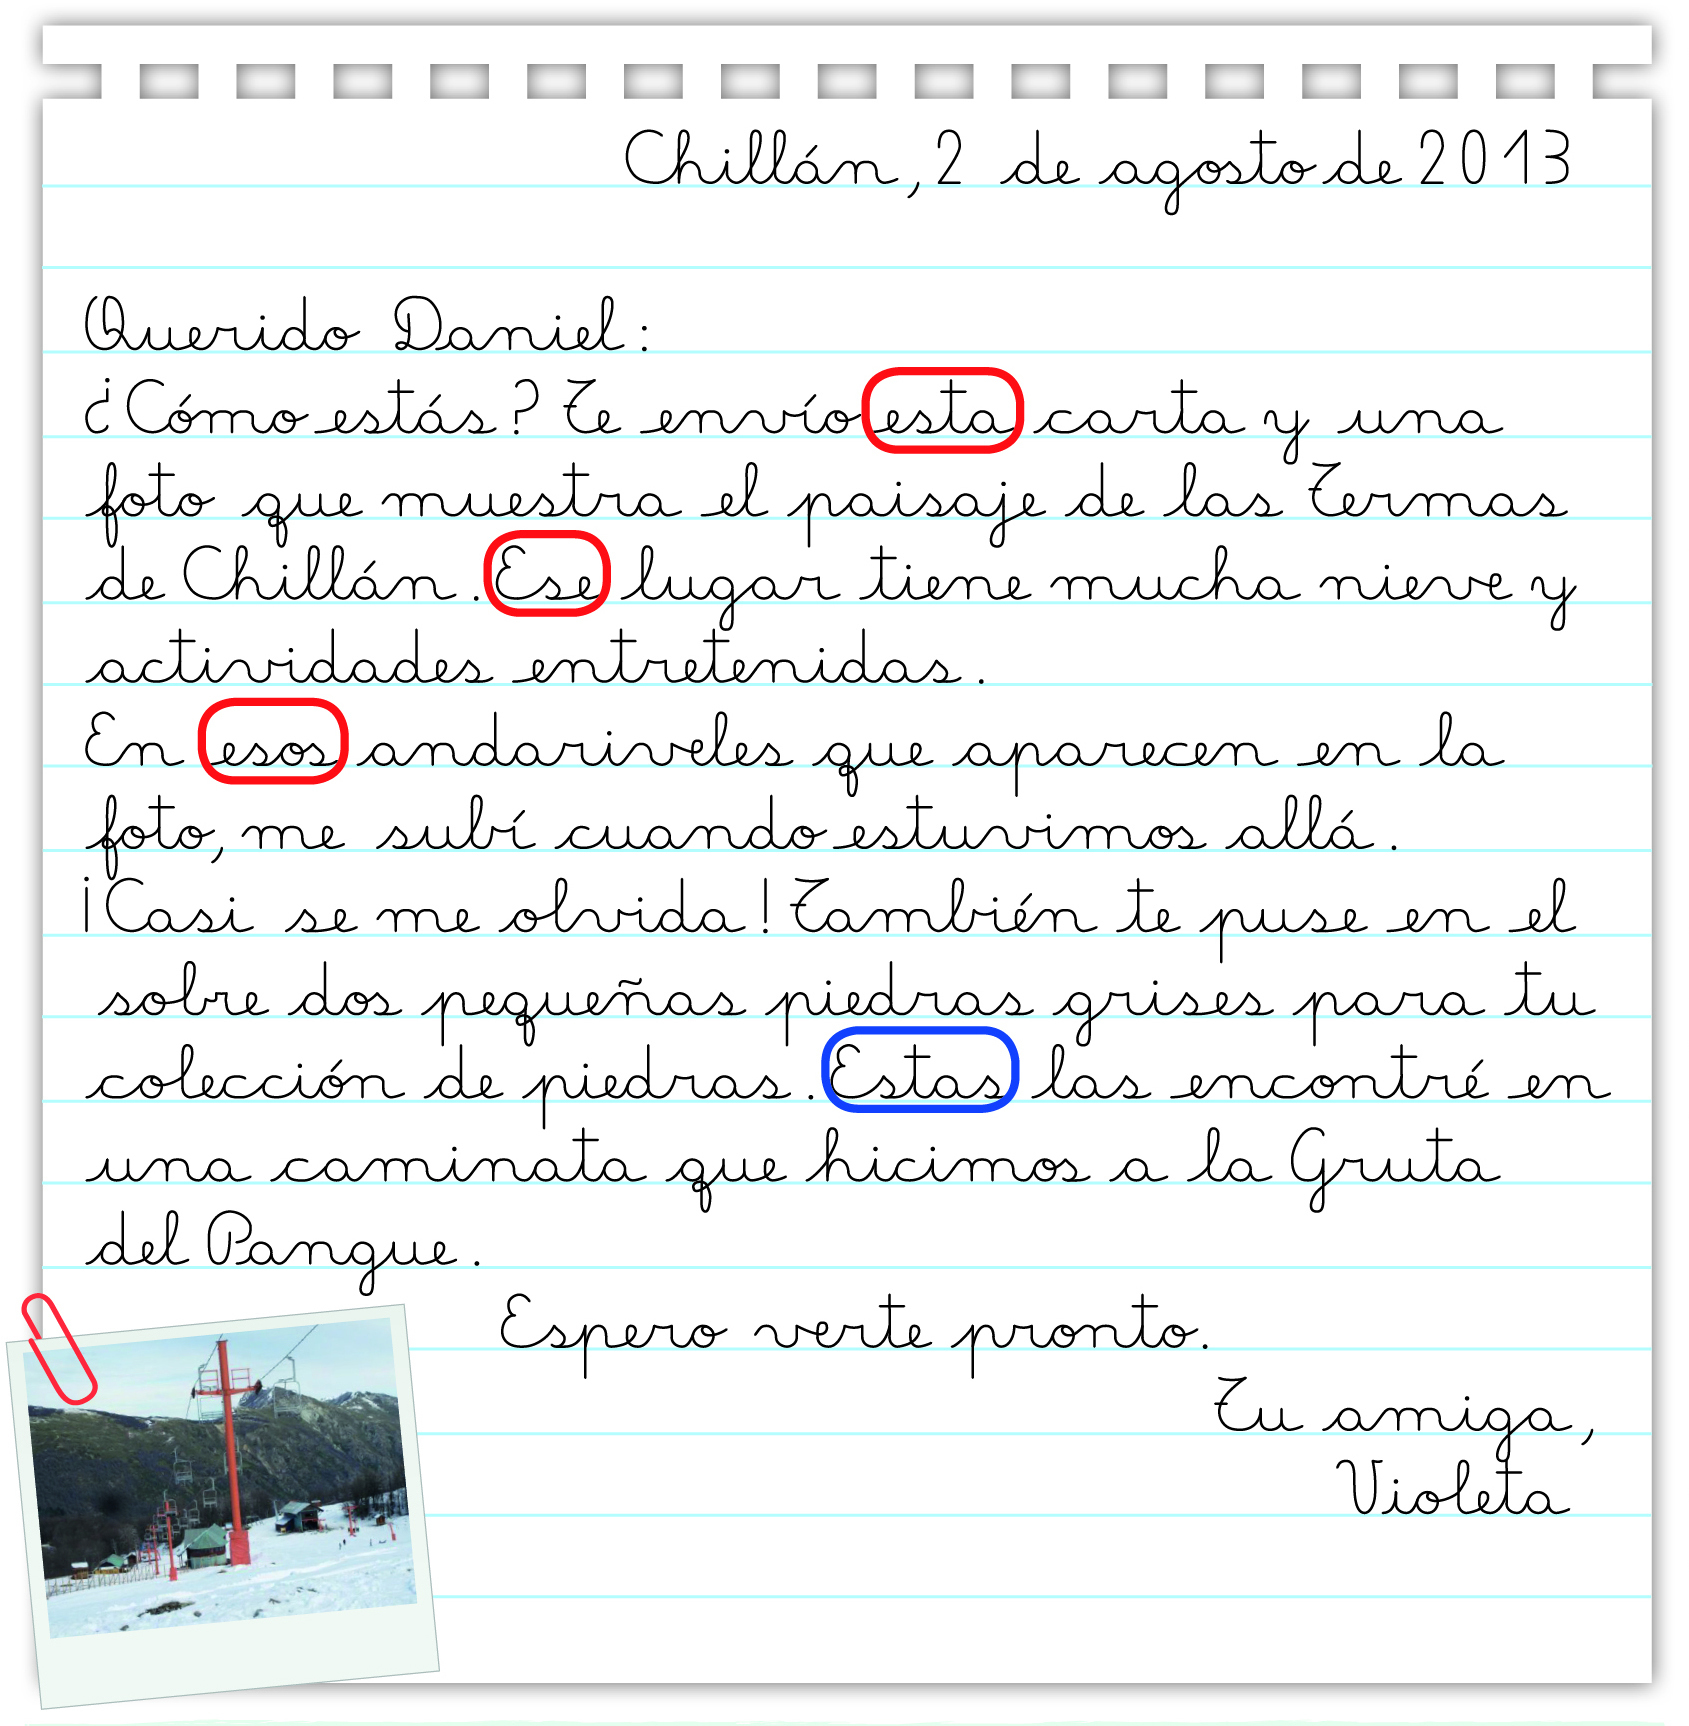 Chillán, 2 de agosto de 2013
Querido Daniel:
¿Cómo estás? Te envío esta carta y una
foto que muestra el paisaje de las Termas
de Chillán. Ese lugar tiene mucha nieve y
actividades entretenidas.
En esos andariveles que aparecen en la
foto, me subí cuando estuvimos allá.
¡Casi se me olvida! También te puse en el
sobre dos pequeñas piedras grises para tu
colección de piedras. Estas las encontré en
una caminata que hicimos a la Gruta
del Pangue.
Espero verte pronto.
Tu amiga,
Violeta